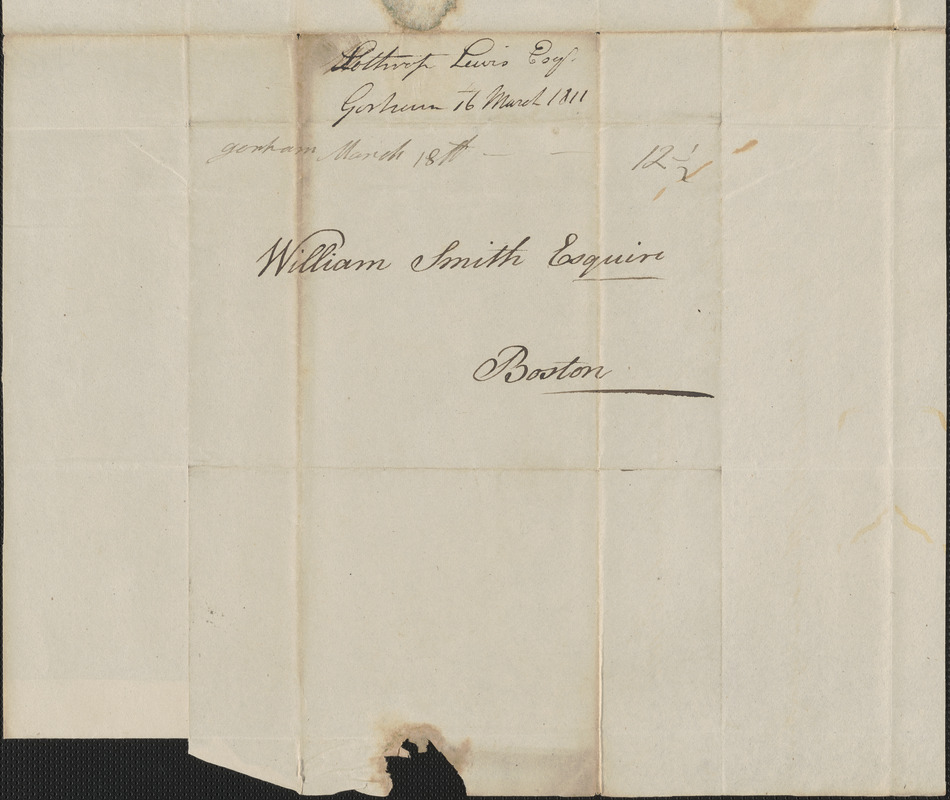 Lothrop Lewis Esq.
Gorham 16 March 1811
gorham March 18th — — 12 1/2
William Smith Esquire
Boston